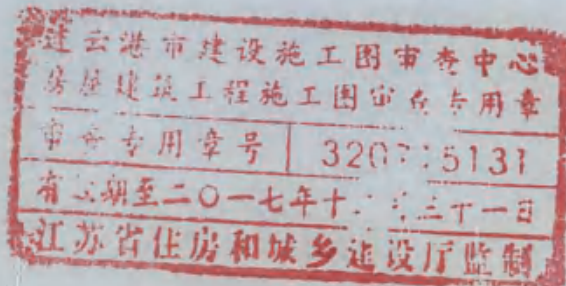 连云港市建设施工图审查中心
房屋建筑工程施工图审查专用章
审查专用章号 320 5131
有效期至二〇一七年十 三十一日
江苏省住房和城乡建设厅监制